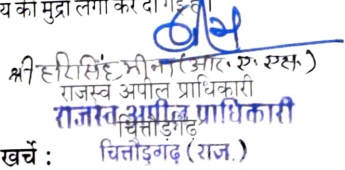 य की मुद्रा लगा कर दी गई है।
श्री हरिसिंह मीना (आर. ए. एस.)
राजस्व अपील प्राधिकारी
राजस्व अपील प्राधिकारी
चित्तौड़गढ़
खर्चे : चित्तौड़गढ़ (राज.)